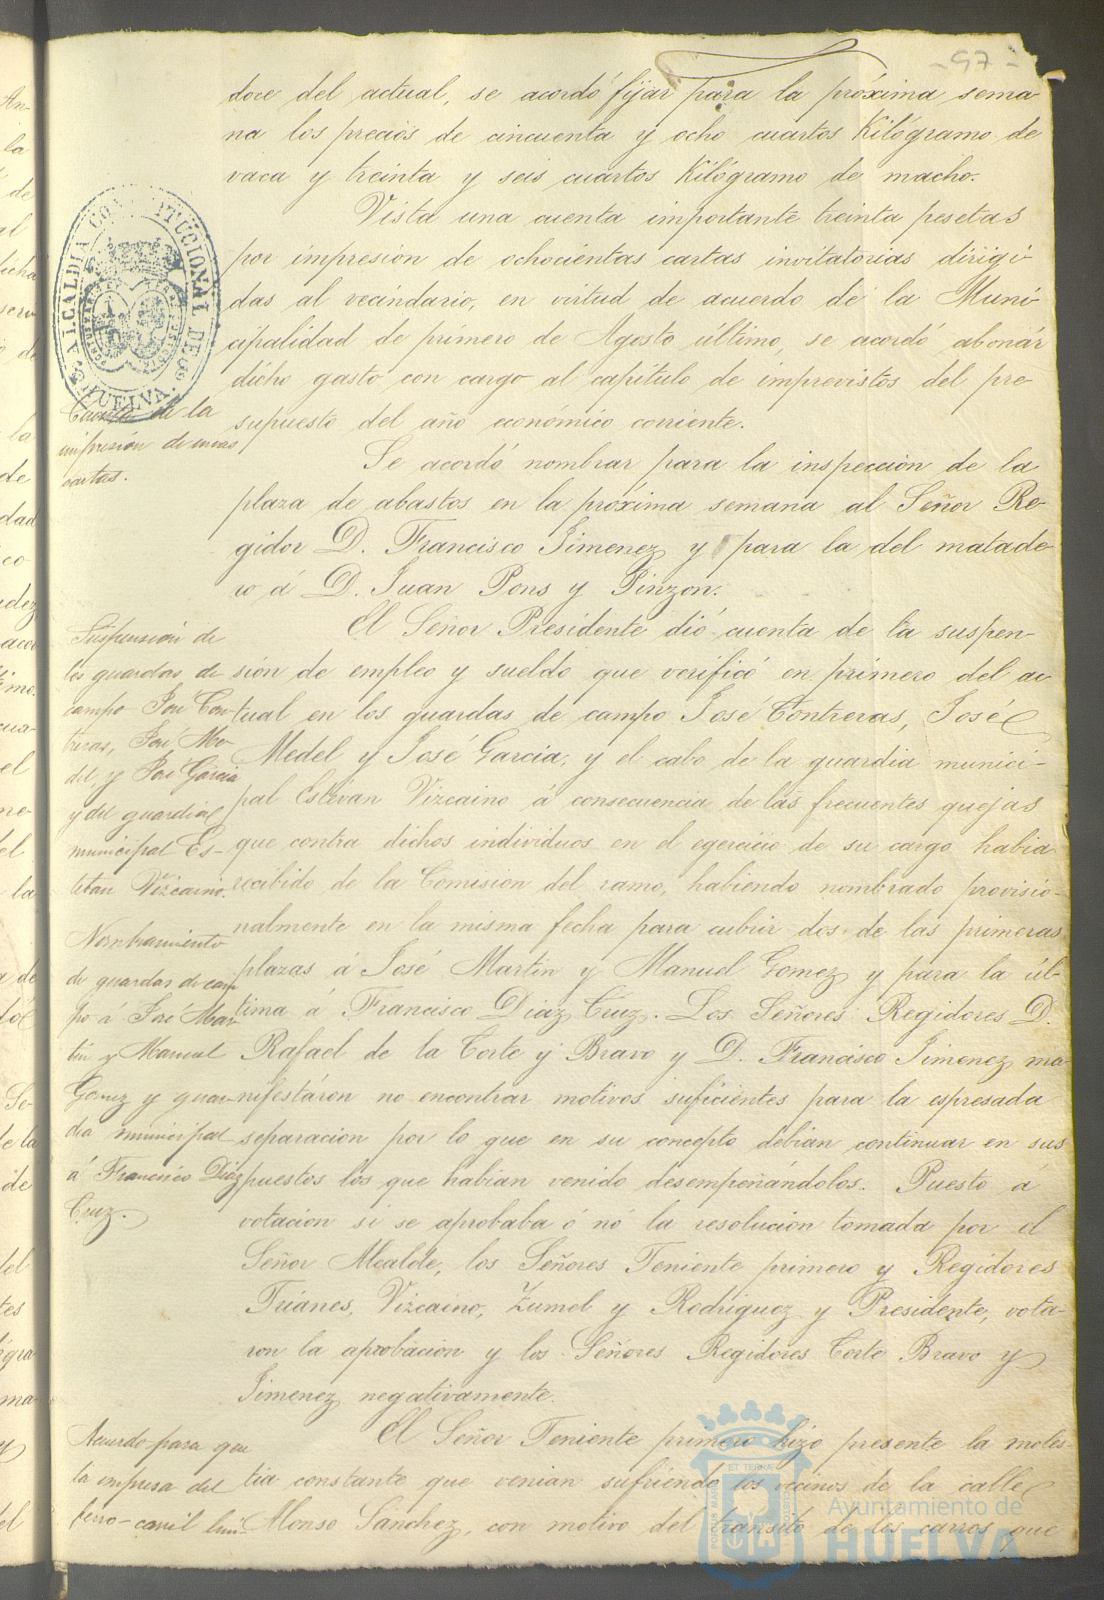 - 97 -
doce del actual, se acordó fijar para la próxima sema-
na los precios de cincuenta y ocho cuartos Kilógramo de
vaca y treinta y seis cuartos Kilógramo de macho.
Vista una cuenta importante treinta pesetas
por impresión de ochocientas cartas invitatorias dirigi-
das al vecindario, en virtud de acuerdo de la Muni-
cipalidad de primero de Agosto último, se acordó abonar
dicho gasto con cargo al capítulo de imprevistos del pre-
supuesto del año económico corriente.
Se acordó nombrar para la inspección de la
plaza de abastos en la próxima semana al Señor Re-
gidor D. Francisco Jimenez y para la del matade-
ro á D. Juan Pons y Pinzon.
El Señor Presidente dió cuenta de la suspen-
sión de empleo y sueldo que verificó en primero del ac-
tual en los guardas de campo José Contreras, José
Medel y José Garcia, y el cabo de la guardia munici-
pal Estevan Vizcaino á consecuencia de las frecuentes quejas
que contra dichos individuos en el egercicio de su cargo habia
recibido de la Comision del ramo, habiendo nombrado provisio-
nalmente en la misma fecha para cubrir dos de las primeras
plazas á José Martin y Manuel Gomez y para la úl-
tima á Francisco Diaz Cruz. Los Señores Regidores D.
Rafael de la Corte y Bravo y D. Francisco Jimenez ma-
nifestáron no encontrar motivos suficientes para la espresada
separacion por lo que en su concepto debian continuar en sus
puestos los que habian venido desempeñándolos. Puesto á
votacion si se aprobaba ó nó la resolucion tomada por el
Señor Alcalde, los Señores Teniente primero y Regidores
Trianes, Vizcaino, Zumel y Rodriguez y Presidente, vota-
ron la aprobacion y los Señores Regidores Corte Bravo y
Jimenez negativamente.
El Señor Teniente primero hizo presente la moles-
tia constante que venian sufriendo los vecinos de la calle
Alonso Sanchez, con motivo del tránsito de los carros que
ALCALDIA CONSTITUCIONAL DE HUELVA.
Cuenta de la
impresión de unas
cartas.
Suspensión de
los guardas de
campo José Con-
treras, José Me-
del, y José Garcia
y del guardia
municipal Es-
teban Vizcaino.
Nombramiento
de guardas de cam
po a José Mar-
tin y Manuel
Gomez y guar-
dia municipal
á Francisco Diaz
Cruz.
Acuerdo para que
la empresa del
ferro-carril
Ayuntamiento de
HUELVA